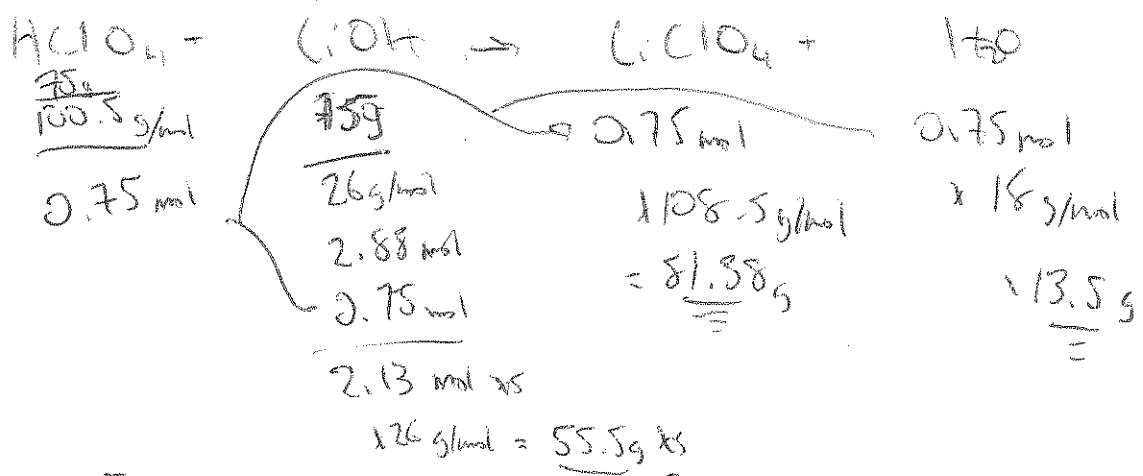 HClO4 + LiOH → LiClO4 + H2O
75g
100.5 g/mol
0.75 mol
75g
26 g/mol
2.88 mol
0.75 mol
2.13 mol xs
x 26 g/mol = 55.5g xs
0.75 mol
x 108.5 g/mol
= 81.38g
0.75 mol
x 18 g/mol
13.5 g